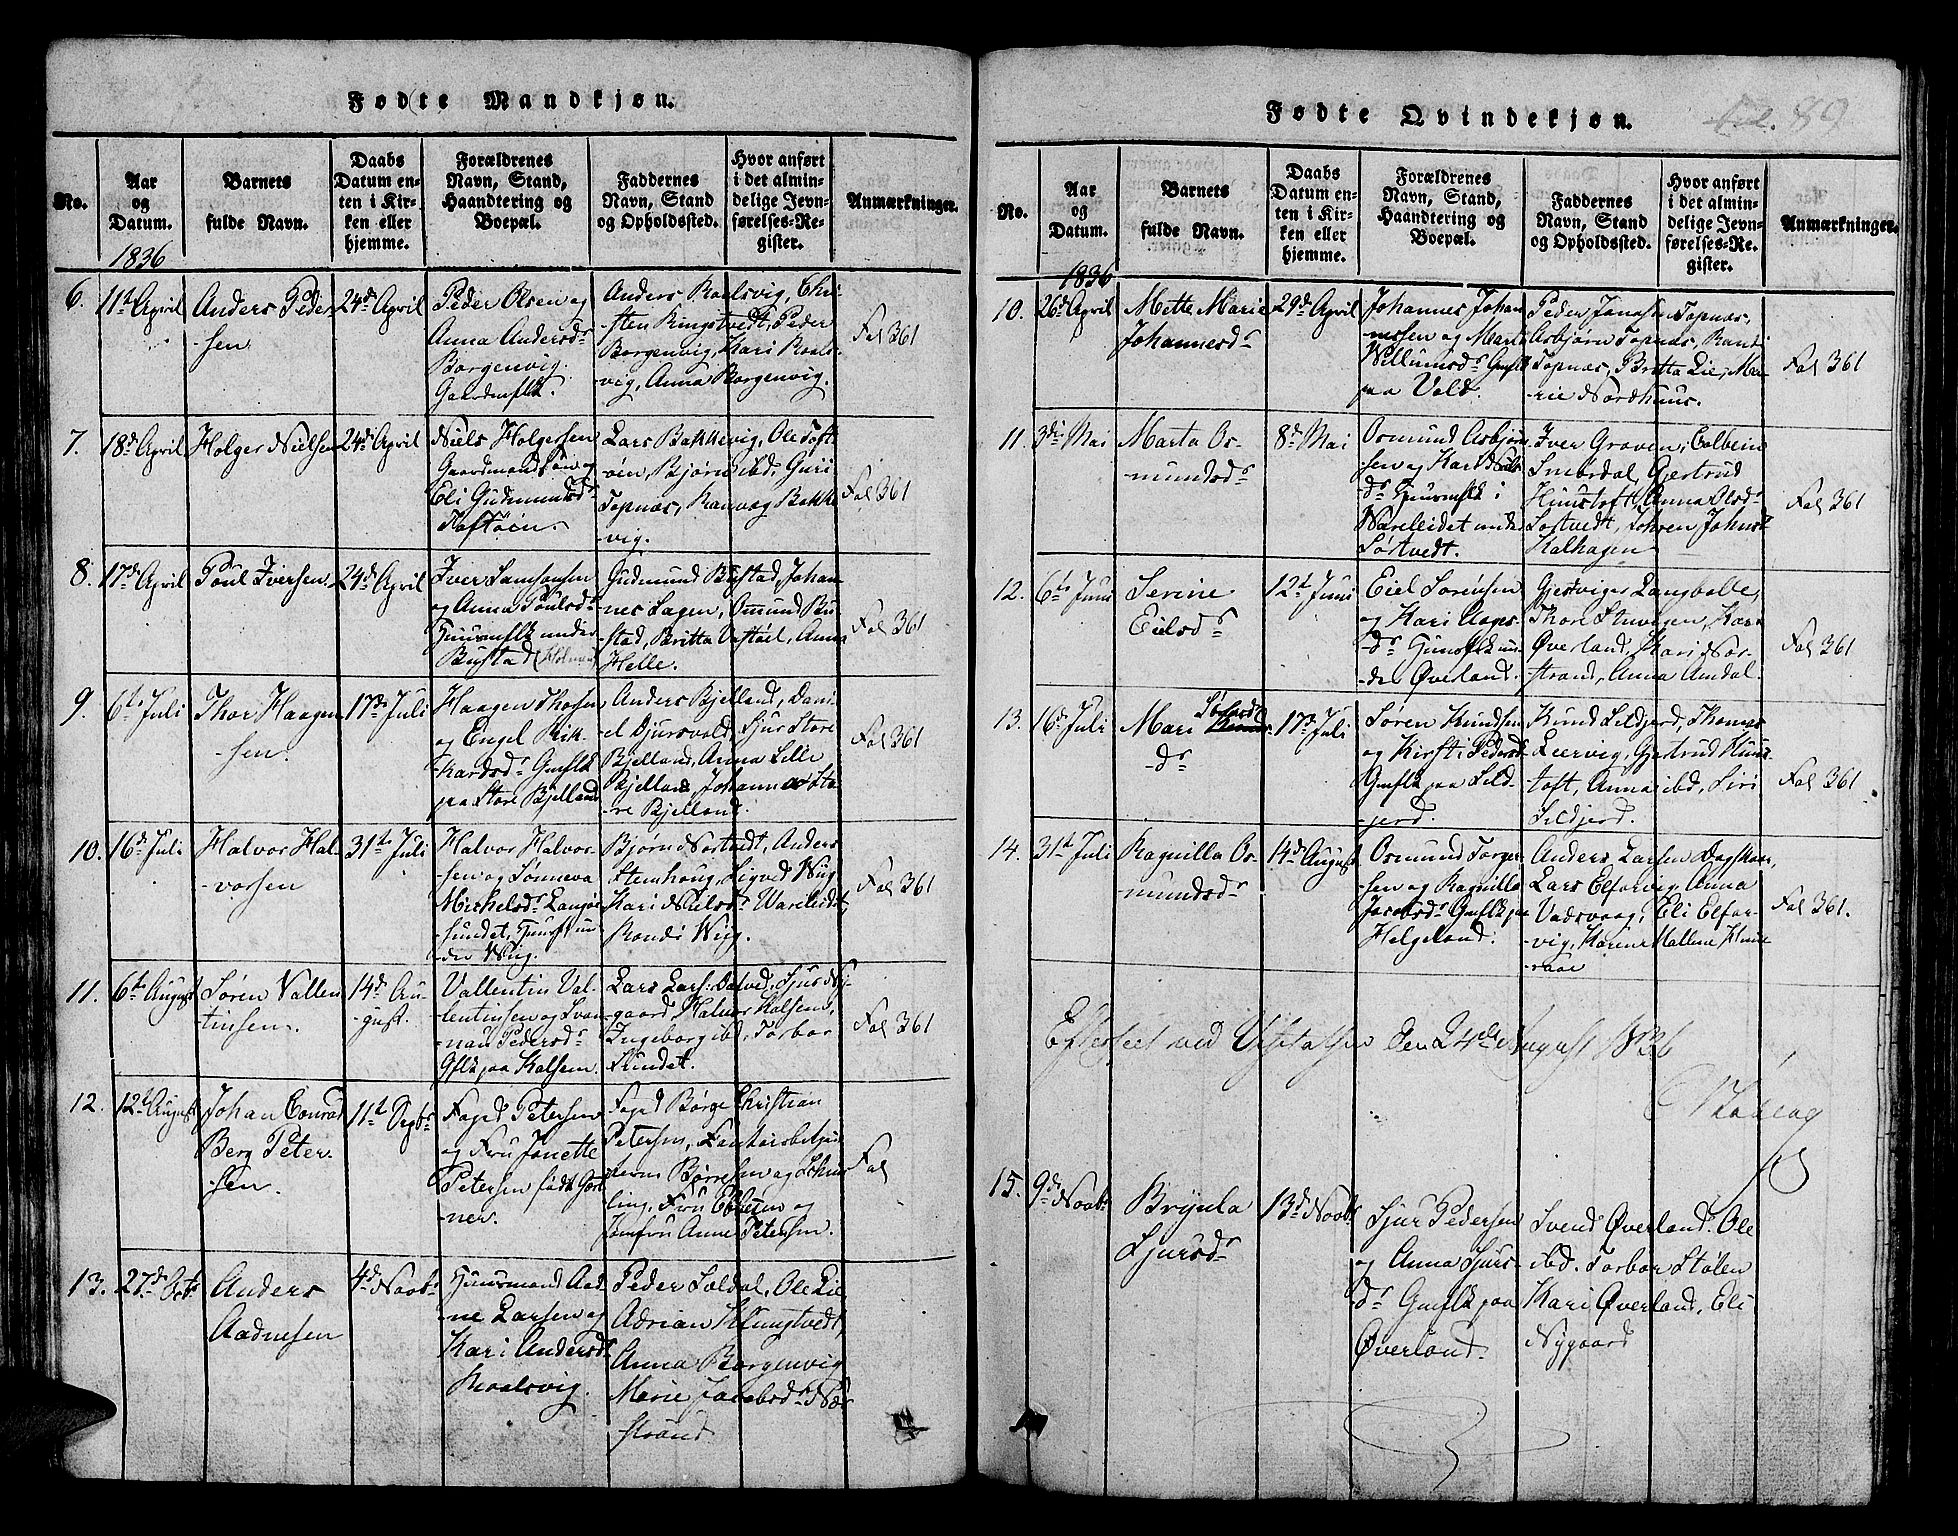 Fødte Mandkjøn.
No.
Aar
og
Datum.
Barnets
fulde Navn.
Daabs
Datum en-
ten i Kir-
ken eller
hjemme.
Forældrenes
Navn, Stand,
Haandtering og
Boepæl.
Faddernes
Navn, Stand
og Opholdssted.
Hvor anført
i det almin-
delige Jevn-
førelses-Re-
gister.
Anmærkninger.
1836
6.
11te April
Anders Peder
-sen
24de April
Peder Olsen og
Anna Andersdr
Borgenvig.
Gaardmflk.
Anders Roalsvig, Chri-
sten Ringstvedt, Peder
Borgenvig, Kari Roals-
vig, Anna Borgenvig.
Fol 361
7.
18de April
Holger Nielsen
24de April
Niels Holgersen
Gaardmand og
Eli Gudmundsdr
Toftøen.
Lars Bakkevig, Ole Toft-
øen, Bjørn ibd, Guri
Topnæs, Ranvog Bakke
vig.
Fol 361
8.
17de April
Poul Iversen
24de April
Iver Samsonsen
og Anna Poulsdr
Huusmflk under
Bustad (Holmen)
Gudmund Bustad, Johan
nes Lagen, Omund Bu
stad, Britta Vestøel, Anna
Helle.
Fol 361
9.
6te Juli
Thor Haagen
-sen.
17de Juli
Haagen Thorsen
og Engel Rik-
kardsdr Gmflk
paa Store Bjelland
Anders Bjelland, Dani-
el Djursvold, Sjur Store
Bjelland, Anna Lille
Bjelland, Johanna Sto-
re Bjelland.
Fol 361
10.
16de Juli
Halvor Hal
-vorsen
31te Juli
Halvor Halvor-
sen og Sønneva
Mickelsdr Langøe
sundet, Huusflk un
der Wiig.
Bjørn Nortvedt, Anders
Steenhoug, Sigved Wiig
Kari Nielsdr Wareleidet,
Randi Wiig.
Fol 361
11.
6te August
Søren Vallen
-tinsen.
14de Au-
gust.
Vallentin Val-
lentinsen og Svan-
nau Pedersdr
Gflk paa Kalsem.
Lars Lars: Dalved, Sjur Ny-
gaard, Halvor Kalsem,
Ingeborg ibd, Torbor
Sundet.
Fol 361
12.
12te August
Johan Conrad
Berg Peter
sen.
11te Sepbr
Foged Petersen
og Fru Janette
Petersen født Gört
ner.
Foged Børge Christian
Petersen,
Børresen og Schnit
ling, Fru Ebbesen og
Jomfru Anne Petersen.
Fol
13.
27de Octbr
Anders
Aadnesen
4de Novbr
Huusmand Aad
ne Larsen og
Kari Andersdr
Roalsvig.
Peder Soldal, Ole Lie
Adrian Klungtvedt,
Anna Borgenvig
Merie Jacobsdr Nær
strand
Fødte Qvindekjøn.
Fol. 89
No.
Aar
og
Datum.
Barnets
fulde Navn.
Daabs
Datum en-
ten i Kir-
ken eller
hjemme.
Forældrenes
Navn, Stand,
Haandtering og
Boepæl.
Faddernes
Navn, Stand
og Opholdssted.
Hvor anført
i det almin-
delige Jevn-
førelses-Re-
gister.
Anmærkninger.
1836
10.
26de April
Mette Marie
Johannesdr
29de April
Johannes Johan
nessen og Marta
Willumsdr Gmflk
paa Vold.
Peder Jonassen Topnæs,
Asbjørn Topnæs, Randi
Topnæs, Britta Lie, Ma-
rie Nordhuus.
Fol 361
11.
3die Mai
Marta Os-
mundsdr
8de Mai
Osmund Asbjørn
sen og Kari Niels
dr Huusmflk i
Wareleidet under
Sørtvedt.
Iver Graven, Colbein
Smørdal, Gjertrud
Huustoft, Anna Olsdr
Sørtvedt, Johnsdr
Kalhagen.
Fol 361
12.
6te Juni
Serine
Eielsdr
12te Juni
Eiel Sørensen
og Kari Aages
dr Huusflk un-
der Øverland.
Langballe,
Thore Stuvigen, Kari
Øverland, Kari Nær-
strand, Anna Amdal.
Fol 361
13.
16de Juli
Mari Sørens
dr
17de Juli
Søren Knudsen
og Kirsti Pedersdr
Gmflk paa Sild-
jerd.
Knud Sildjerd, Thomas
Leervig, Gjertrud Huus
toft, Anna ibd, Siri
Sildjerd.
Fol 361
14.
31te Juli
Ragnilla Os-
mundsdr
14de August
Osmund Torger
sen og Ragnilla
Jacobsdr Gmflk paa
Helgeland.
Anders Larsen Dagsland,
Lars Elfarvig, Anna
Vadsvaag, Eli Elfar-
vig, Karen Malline Knut
raae
Fol 361.
Efterseet ved Visitatsen den 24de August 1836
15.
9de Novbr
Brynla
Sjursdr
13de Novbr
Sjur Pedersen
og Anna Sjurs-
dr Gmflk paa
Øverland.
Svend Øverland. Ole
ibd. Torbor Stølen
Kari Øverland, Eli
Nygaard